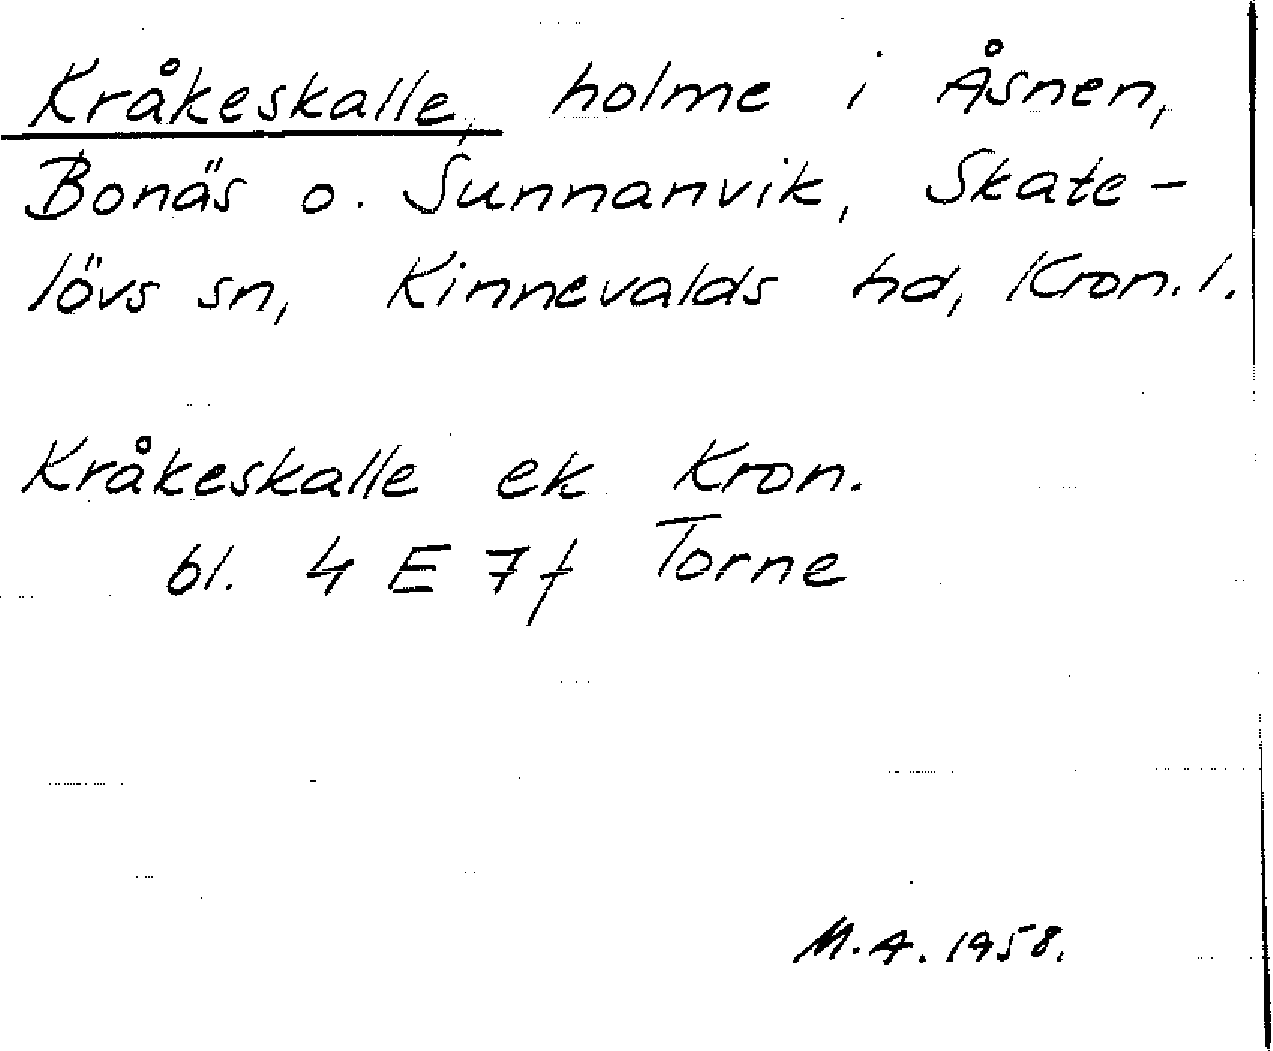 Kråkeskalle, holme i Åsnen,
Bonäs o. Sunnanvik, Skate-
lövs sn, Kinnevalds hd, Kron. l.
Kråkeskalle ek Kron.
bl. 4 E 7 f Torne
M. A. 1958.